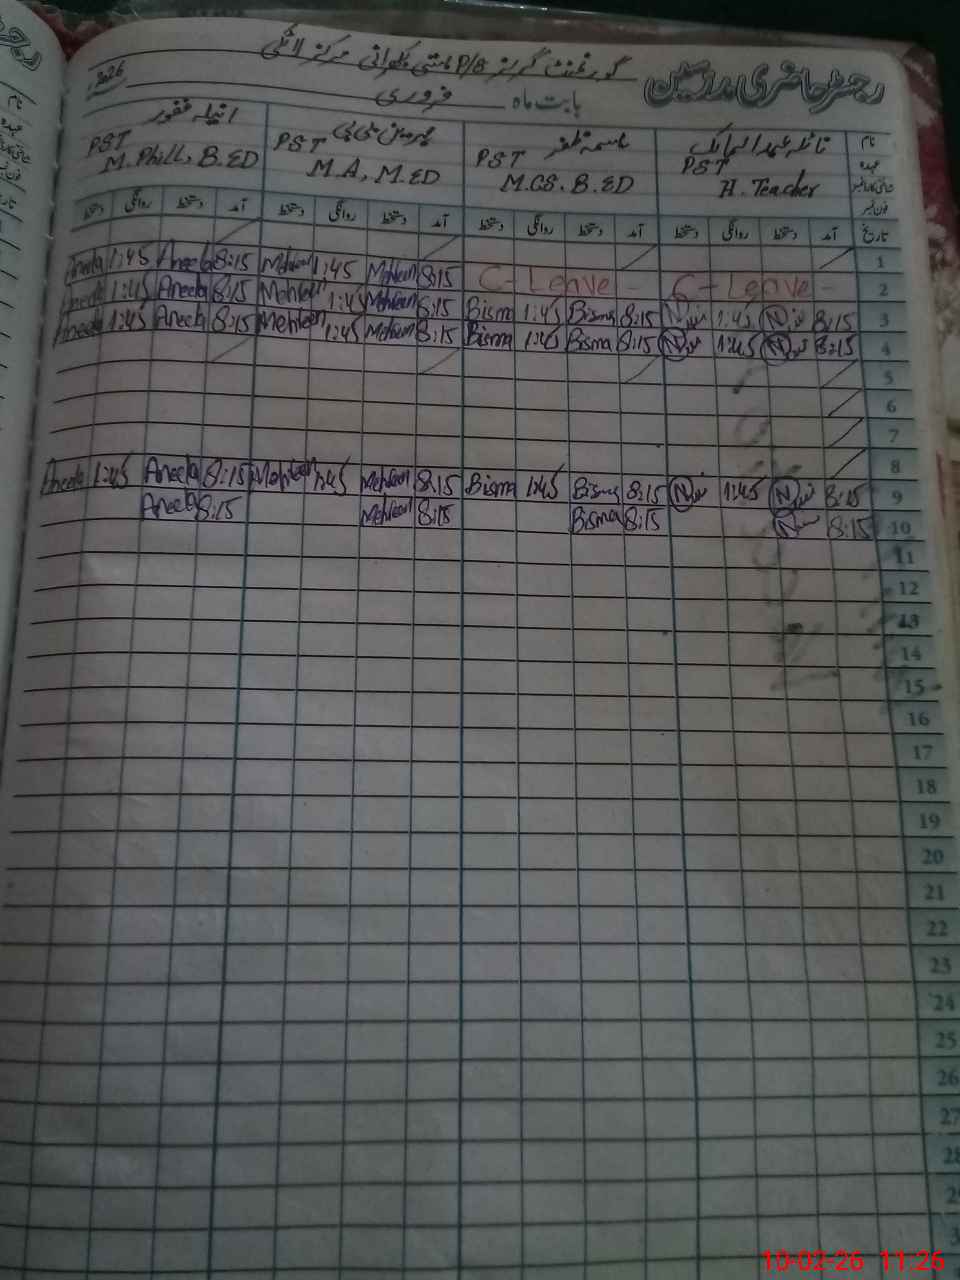 رجسٹر حاضری مدرسین
گورنمنٹ گرلز P/S
بابت ماہ فروری
2026
نام
عہدہ
تاریخ
PST
H. Teacher
PST
M.CS. B.ED
PST
M.A, M.ED
انیلہ غفور
PST
M.Phill, B.ED
آمد دستخط روانگی دستخط آمد دستخط روانگی دستخط آمد دستخط روانگی دستخط آمد دستخط روانگی دستخط
1
Aneela 1:45 Aneela 8:15 Mehleen 1:45 Mehleen 8:15 C-Leave - C-Leave - 2
Aneela 1:45 Aneela 8:15 Mehleen 1:45 Mehleen 8:15 Bisma 1:45 Bisma 8:15 N 1:45 N 8:15 3
Aneela 1:45 Aneela 8:15 Mehleen 1:45 Mehleen 8:15 Bisma 1:45 Bisma 8:15 N 1:45 N 8:15 4
5
6
7
8
Aneela 1:45 Aneela 8:15 Mehleen 1:45 Mehleen 8:15 Bisma 1:45 Bisma 8:15 N 1:45 N 8:15 9
Aneela 8:15 Mehleen 8:15 Bisma 8:15 N 8:15 10
11
12
13
14
15
16
17
18
19
20
21
22
23
24
25
26
27
28
10-02-26 11:26